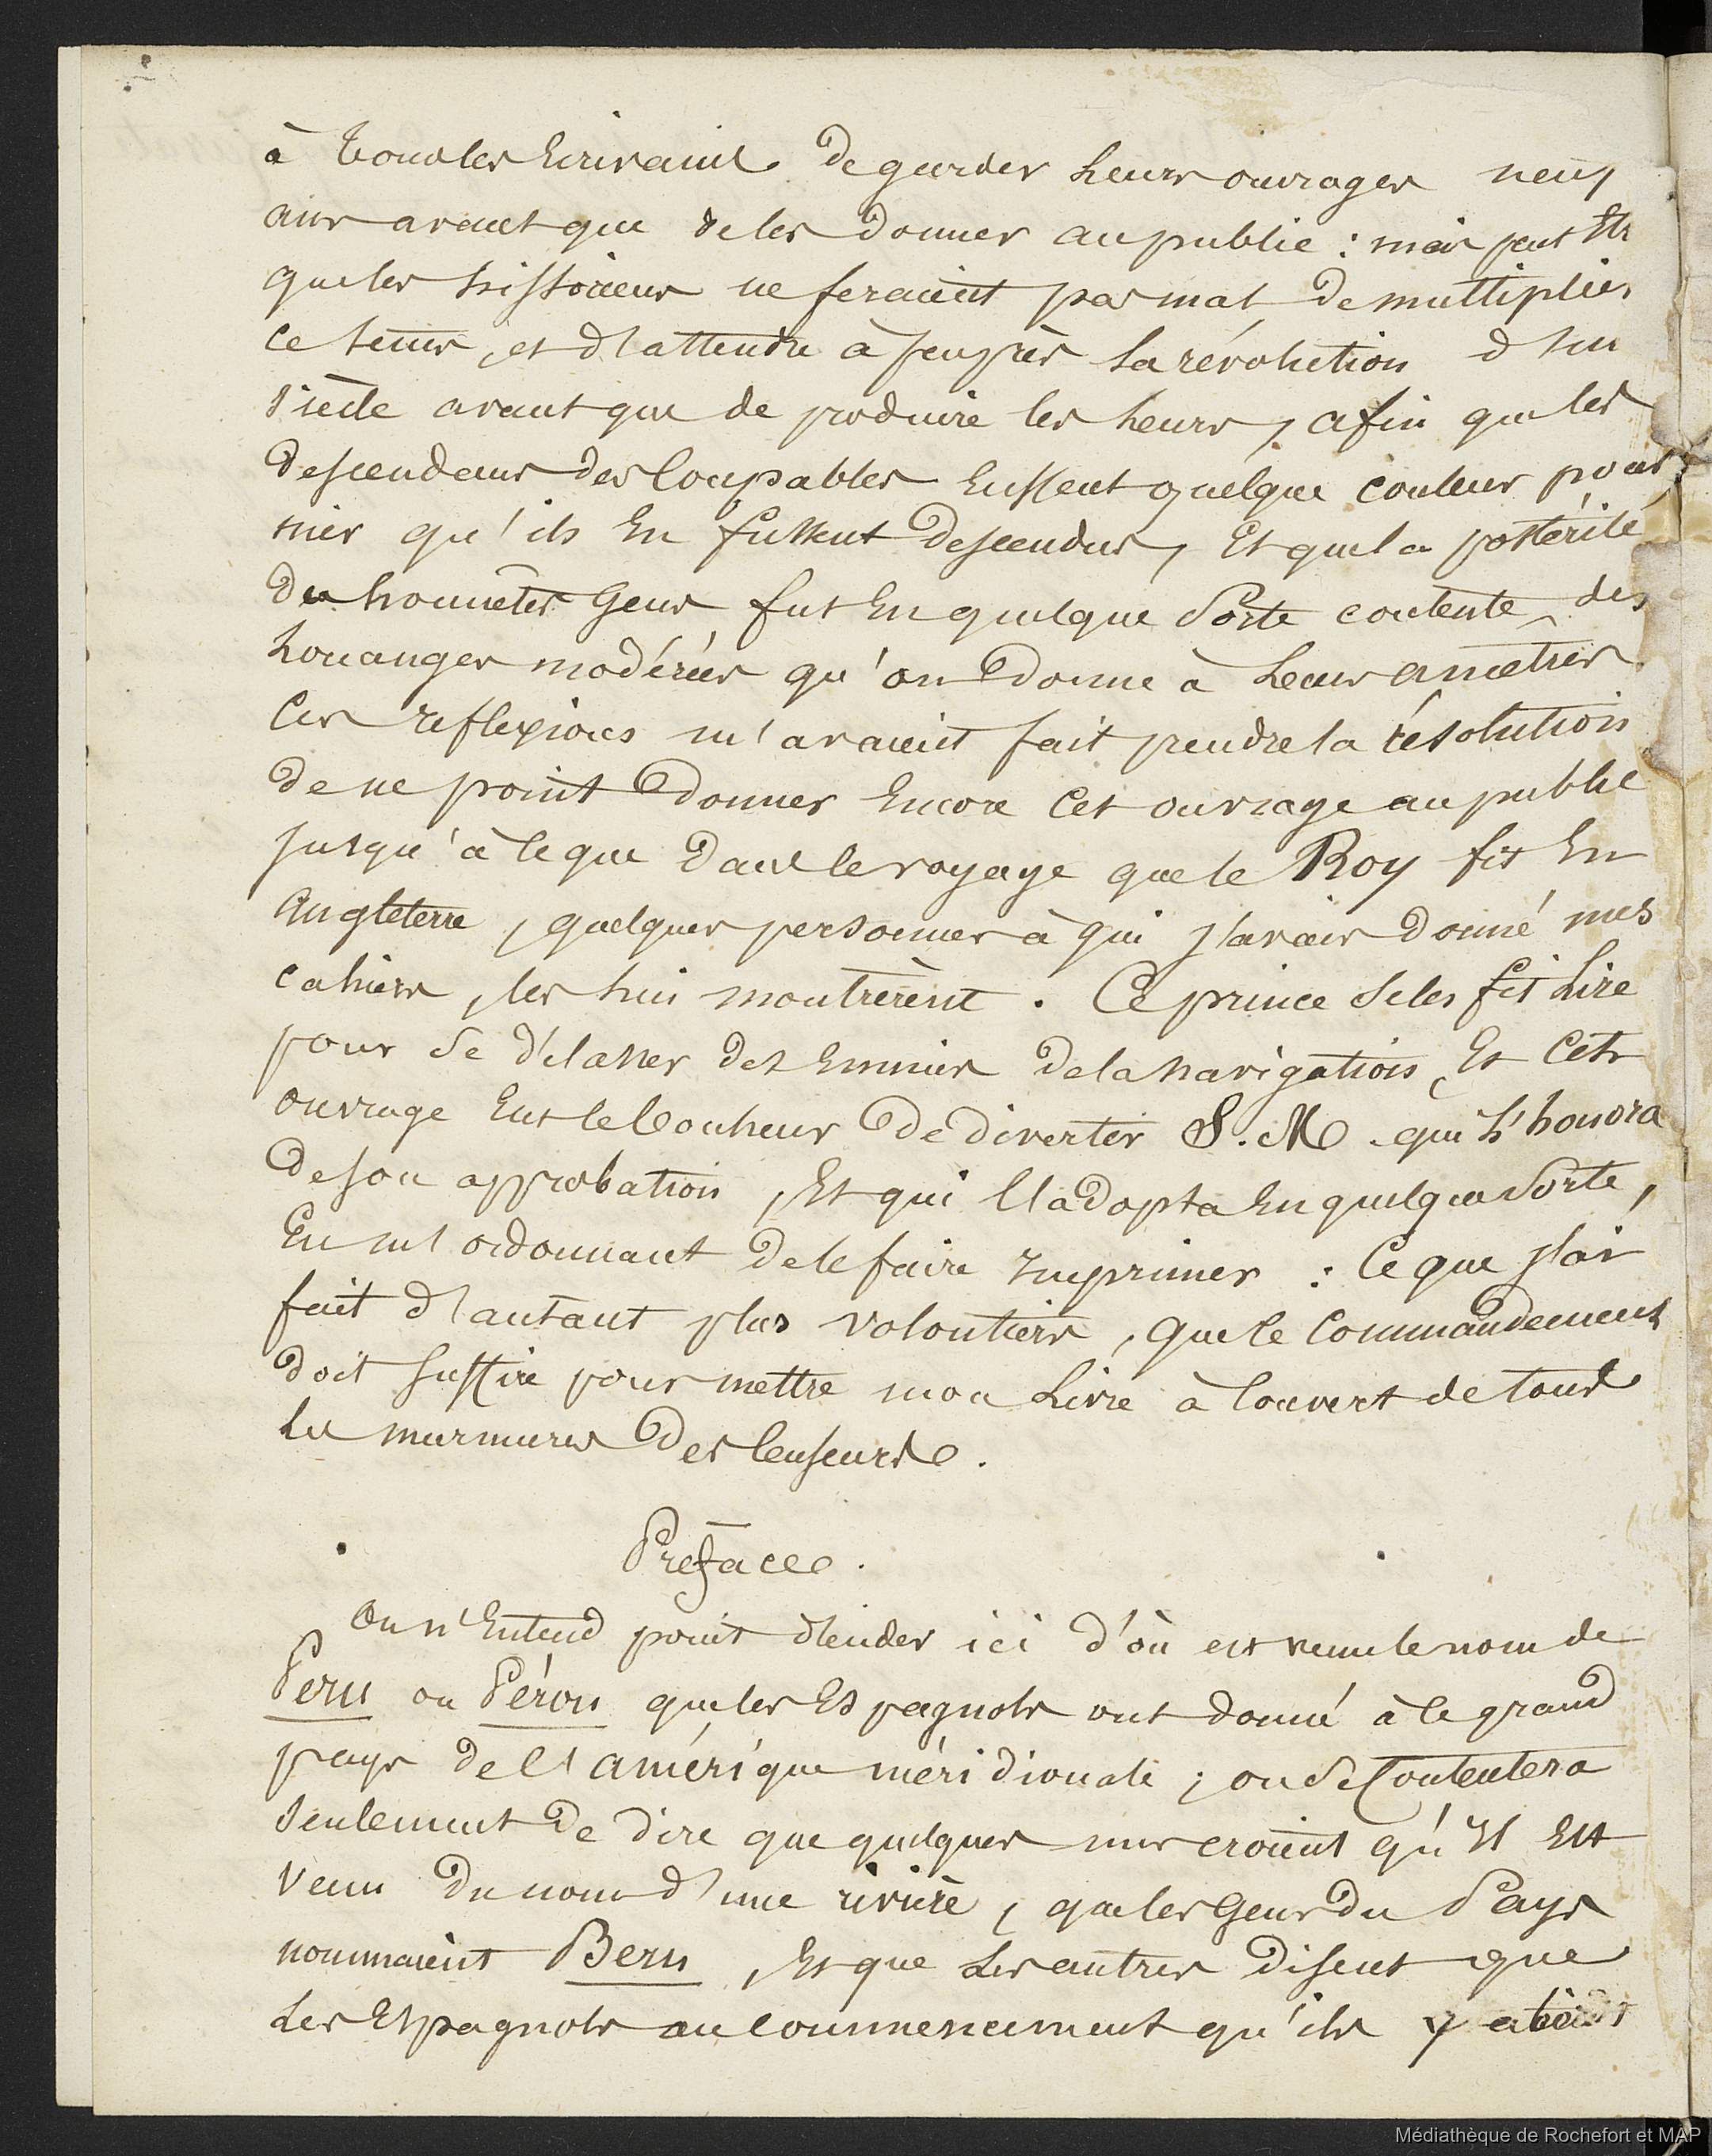 à tous les Ecrivains de garder leurs ouvrages neuf
ans avant que de les donner au public : mais peut Etr
que les historiens ne feraient pas mal de multiplier
ce tems, et d'attendre à peu près la révolution d'un
siècle avant que de produire les leurs, afin que les
descendans des Coupables Eussent quelque couleur pour
nier qu'ils En fussent descendus, Et que la postérité
des honnêtes Gens fut En quelque Sorte contente des
louanges modérées qu'on donne à leurs ancêtres.
Ces reflexions m'avaient fait prendre la résolution
de ne point donner Encore Cet ouvrage au public
jusqu'à ce que dans le voyage que le Roy fit En
Angleterre, quelques personnes à qui j'avais donné mes
cahiers, les lui montrèrent. Ce prince se les fit Lire
pour se délasser des Ennuis de la navigation, Et Cet
ouvrage Eut le bonheur de divertir S. M. qui l'honora
de son approbation, Et qui l'adopta En quelque Sorte,
En m'ordonnant de le faire Imprimer : Ce que j'ai
fait d'autant plus volontiers, que ce Commandement
doit suffire pour mettre mon Livre à Couvert de tous
les murmures des Censeurs.
Preface.
On n'Entend point décider ici d'où est venu le nom de
Peru ou Pérou que les Espagnols ont donné à ce grand
pays de l'amérique méridionale ; on se Contentera
seulement de dire que quelques uns croient qu'il Est
venu du nom d'une rivière, que les Gens du Pays
nommaient Beru, Et que les autres disent que
les Espagnols au commencement qu'ils y
Médiathèque de Rochefort et MAP